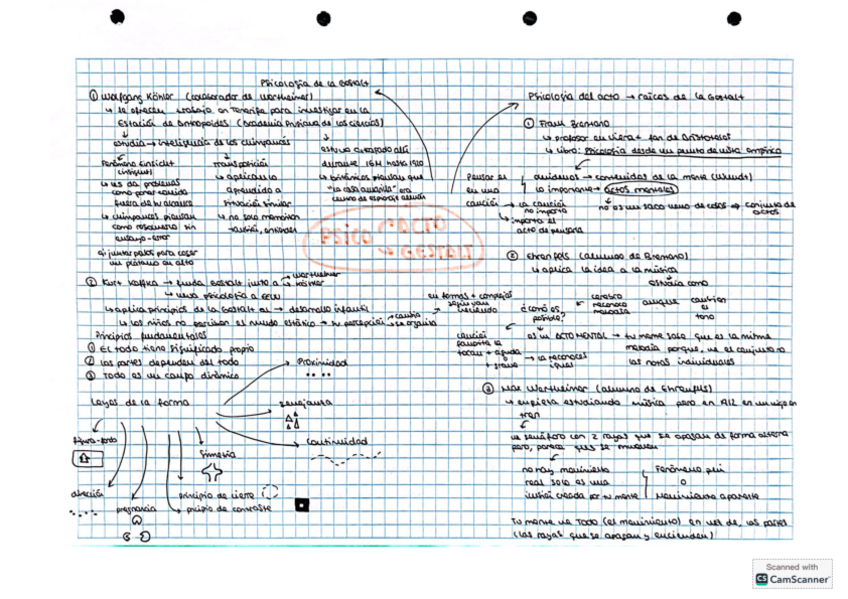 Psicología de la Gestalt
① Wolfgang Köhler (colaborador de Wertheimer)
↳ le ofrecen trabajo en Tenerife para investigar en la
Estación de Antropoides (Academia Prusiana de las ciencias)
estudia → inteligencia de los chimpancés
estuvo atrapado allí
durante IGM hasta 1920
↳ británicos piensan que
"la casa amarilla" era
centro de espionaje alemán
Fenómeno einsicht
(insight)
↳ les da problemas
como poner comida
fuera de su alcance
↳ chimpancés piensan
como resolverlo sin
ensayo-error
ej: juntar palos para coger
un plátano en alto
transposición
↳ aplican lo
aprendido a
situación similar
↳ no solo memorizan
también, entienden
② Kurt Koffka → funda Gestalt junto a → Wertheimer
→ Köhler
↳ lleva psicología a EEUU
↳ aplica principios de la Gestalt al → desarrollo infantil
↳ los niños no perciben el mundo estático → su percepción → cambia
→ se organiza
en formas + complejas
según van
creciendo
Principios fundamentales
① El todo tiene significado propio
② Las partes dependen del todo
③ Todo es un campo dinámico
Leyes de la forma
Proximidad
semejanza
continuidad
figura-fondo
simetría
dirección
pregnancia
principio de cierre
principio de contraste
PSICO → ACTO
→ GESTALT
Psicología del acto → raíces de la Gestalt
① Franz Brentano
↳ profesor en Viena + fan de Aristóteles
↳ Libro: Psicología desde un punto de vista empírico
Pensar en
en una
canción → la canción
no importa
↳ importa el
acto de pensarla
olvidemos → contenidos de la mente (Wundt)
lo importante → actos mentales
no es un saco lleno de cosas ⇒ conjunto de
actos
② Ehrenfels (alumno de Brentano)
↳ aplica la idea a la música
estudia como
cerebro
reconoce
melodía
aunque
cambien
el
tono
¿cómo es
posible?
canción
favorita la
tocan + aguda
o
+ grave
→ la reconoces
igual
es un ACTO MENTAL → tu mente sabe que es la misma
melodía porque, ve el conjunto no
las notas individuales
③ Max Wertheimer (alumno de Ehrenfels)
↳ empieza estudiando música pero en 1912 en un viaje en
tren
ve semáforo con 2 rayas que se apagan de forma alterna
pero, parece que se mueven
no hay movimiento
real solo es una
ilusión creada por tu mente
Fenómeno phi
o
Movimiento aparente
Tu mente ve TODO (el movimiento) en vez de, las partes
(las rayas que se apagan y encienden)
Scanned with
CS CamScanner